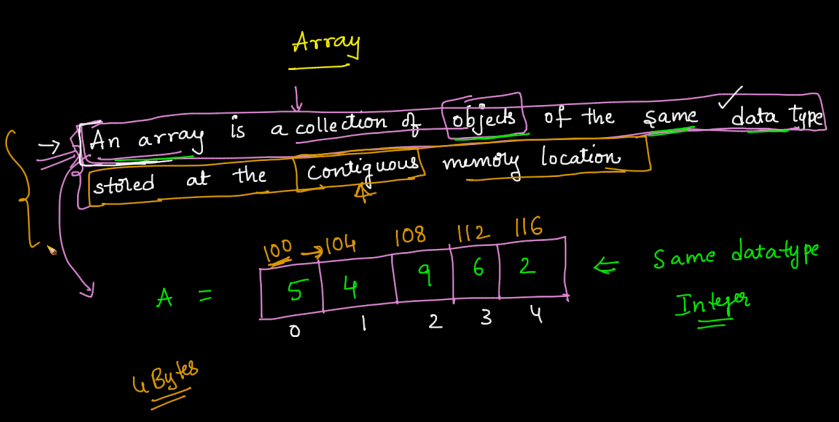 Array
An array is a collection of objects of the same data type
stored at the contiguous memory location
100 → 104 108 112 116
A = 5 4 9 6 2 ← Same datatype
Integer
0 1 2 3 4
4 Bytes